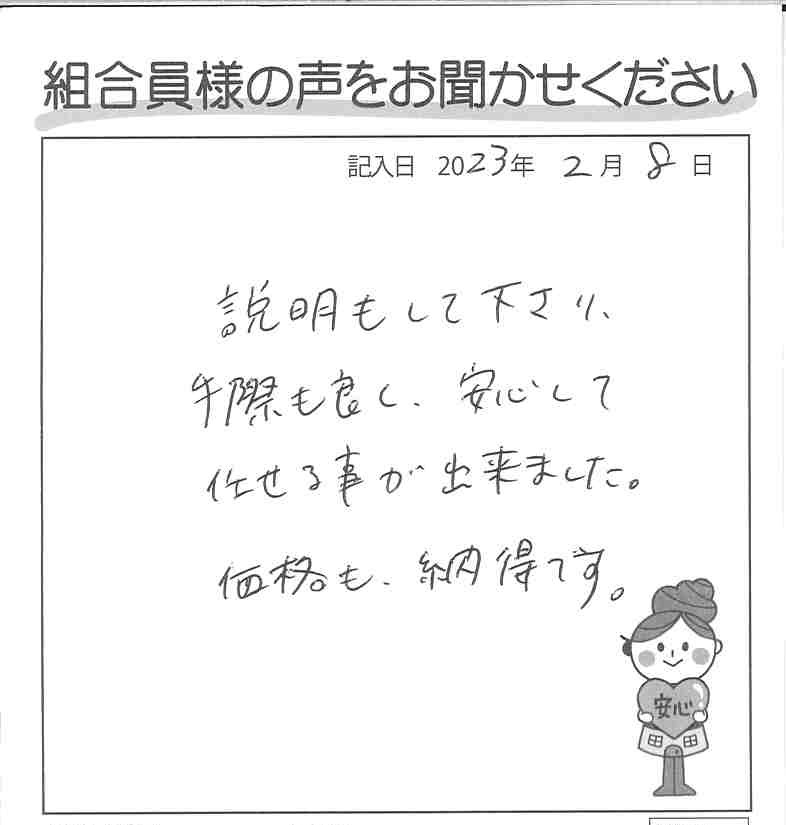 組合員様の声をお聞かせください
記入日 2023年 2月 8日
説明もして下さり、
手際も良く、安心して
任せる事が出来ました。
価格も、納得です。
安心